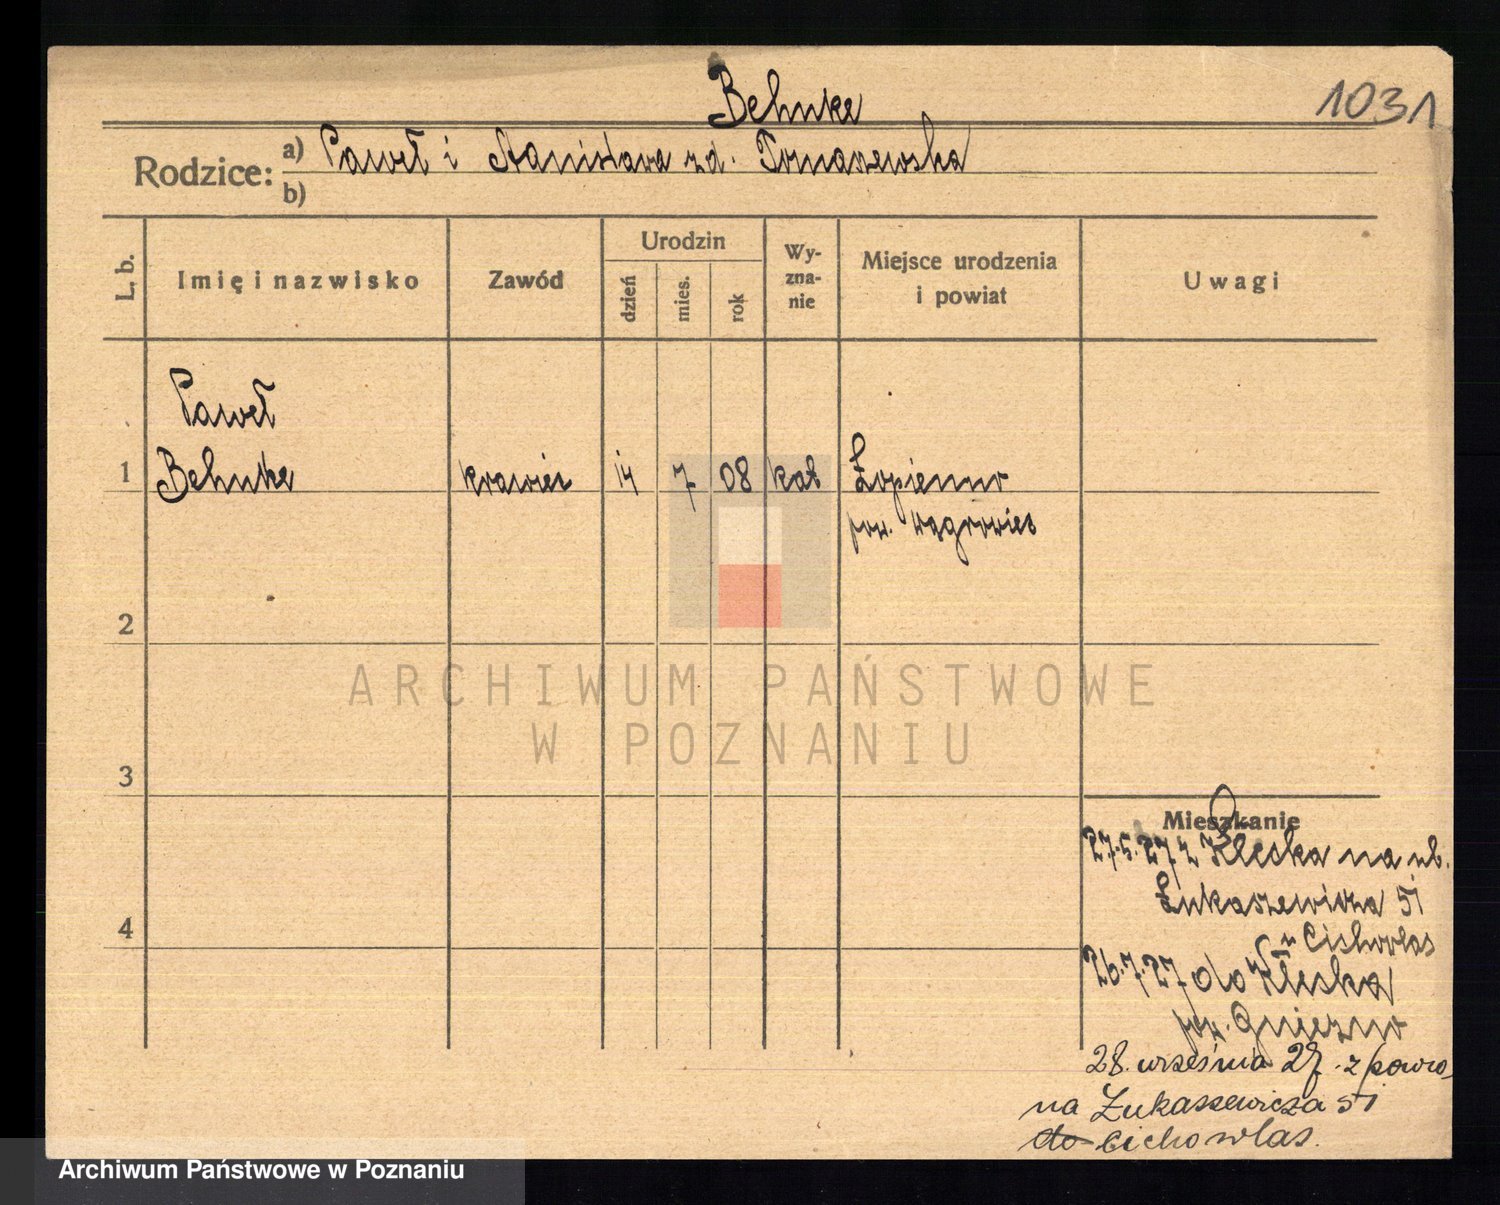 Behnke
1031
Rodzice: a) Paweł i Stanisława zd. Tomaszewska
b)
L. b.
Imię i nazwisko
Zawód
Urodzin
dzień
mies.
rok
Wy-
zna-
nie
Miejsce urodzenia
i powiat
Uwagi
Paweł
1 Behnke krawiec 14 7 08 kat Łopienno
pow. Wągrowiec
2
3
4
ARCHIWUM PAŃSTWOWE
W POZNANIU
Mieszkanie
27.5.27 z Kłecka na ul.
Łukaszewicza 51
u Cichowlas
26.7.27 do Kłecka
pow. Gniezno
28. września 27. z powro
na Łukaszewicza 51
do Cichowlas.
Archiwum Państwowe w Poznaniu